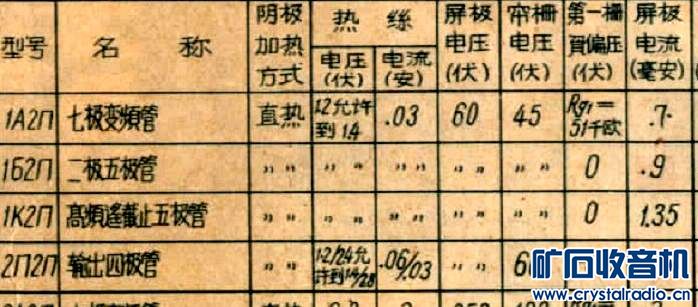 型号 名称 阴极加热方式 热絲 电压(伏) 电流(安) 屏极电压(伏) 帘栅电压(伏) 第一栅負偏压(伏) 屏极电流(毫安)
1А2П 七极变頻管 直热 1.2允許到1.4 .03 60 45 Rg1=51千欧 .7
1Б2П 二极五极管 〃 〃 〃 〃 〃 0 .9
1К2П 高頻遙截止五极管 〃 〃 〃 〃 〃 0 1.35
2П2П 输出四极管 〃 1.2/2.4允許到1.4/2.8 .06/.03
矿石收音机
www.crystalradio.cn